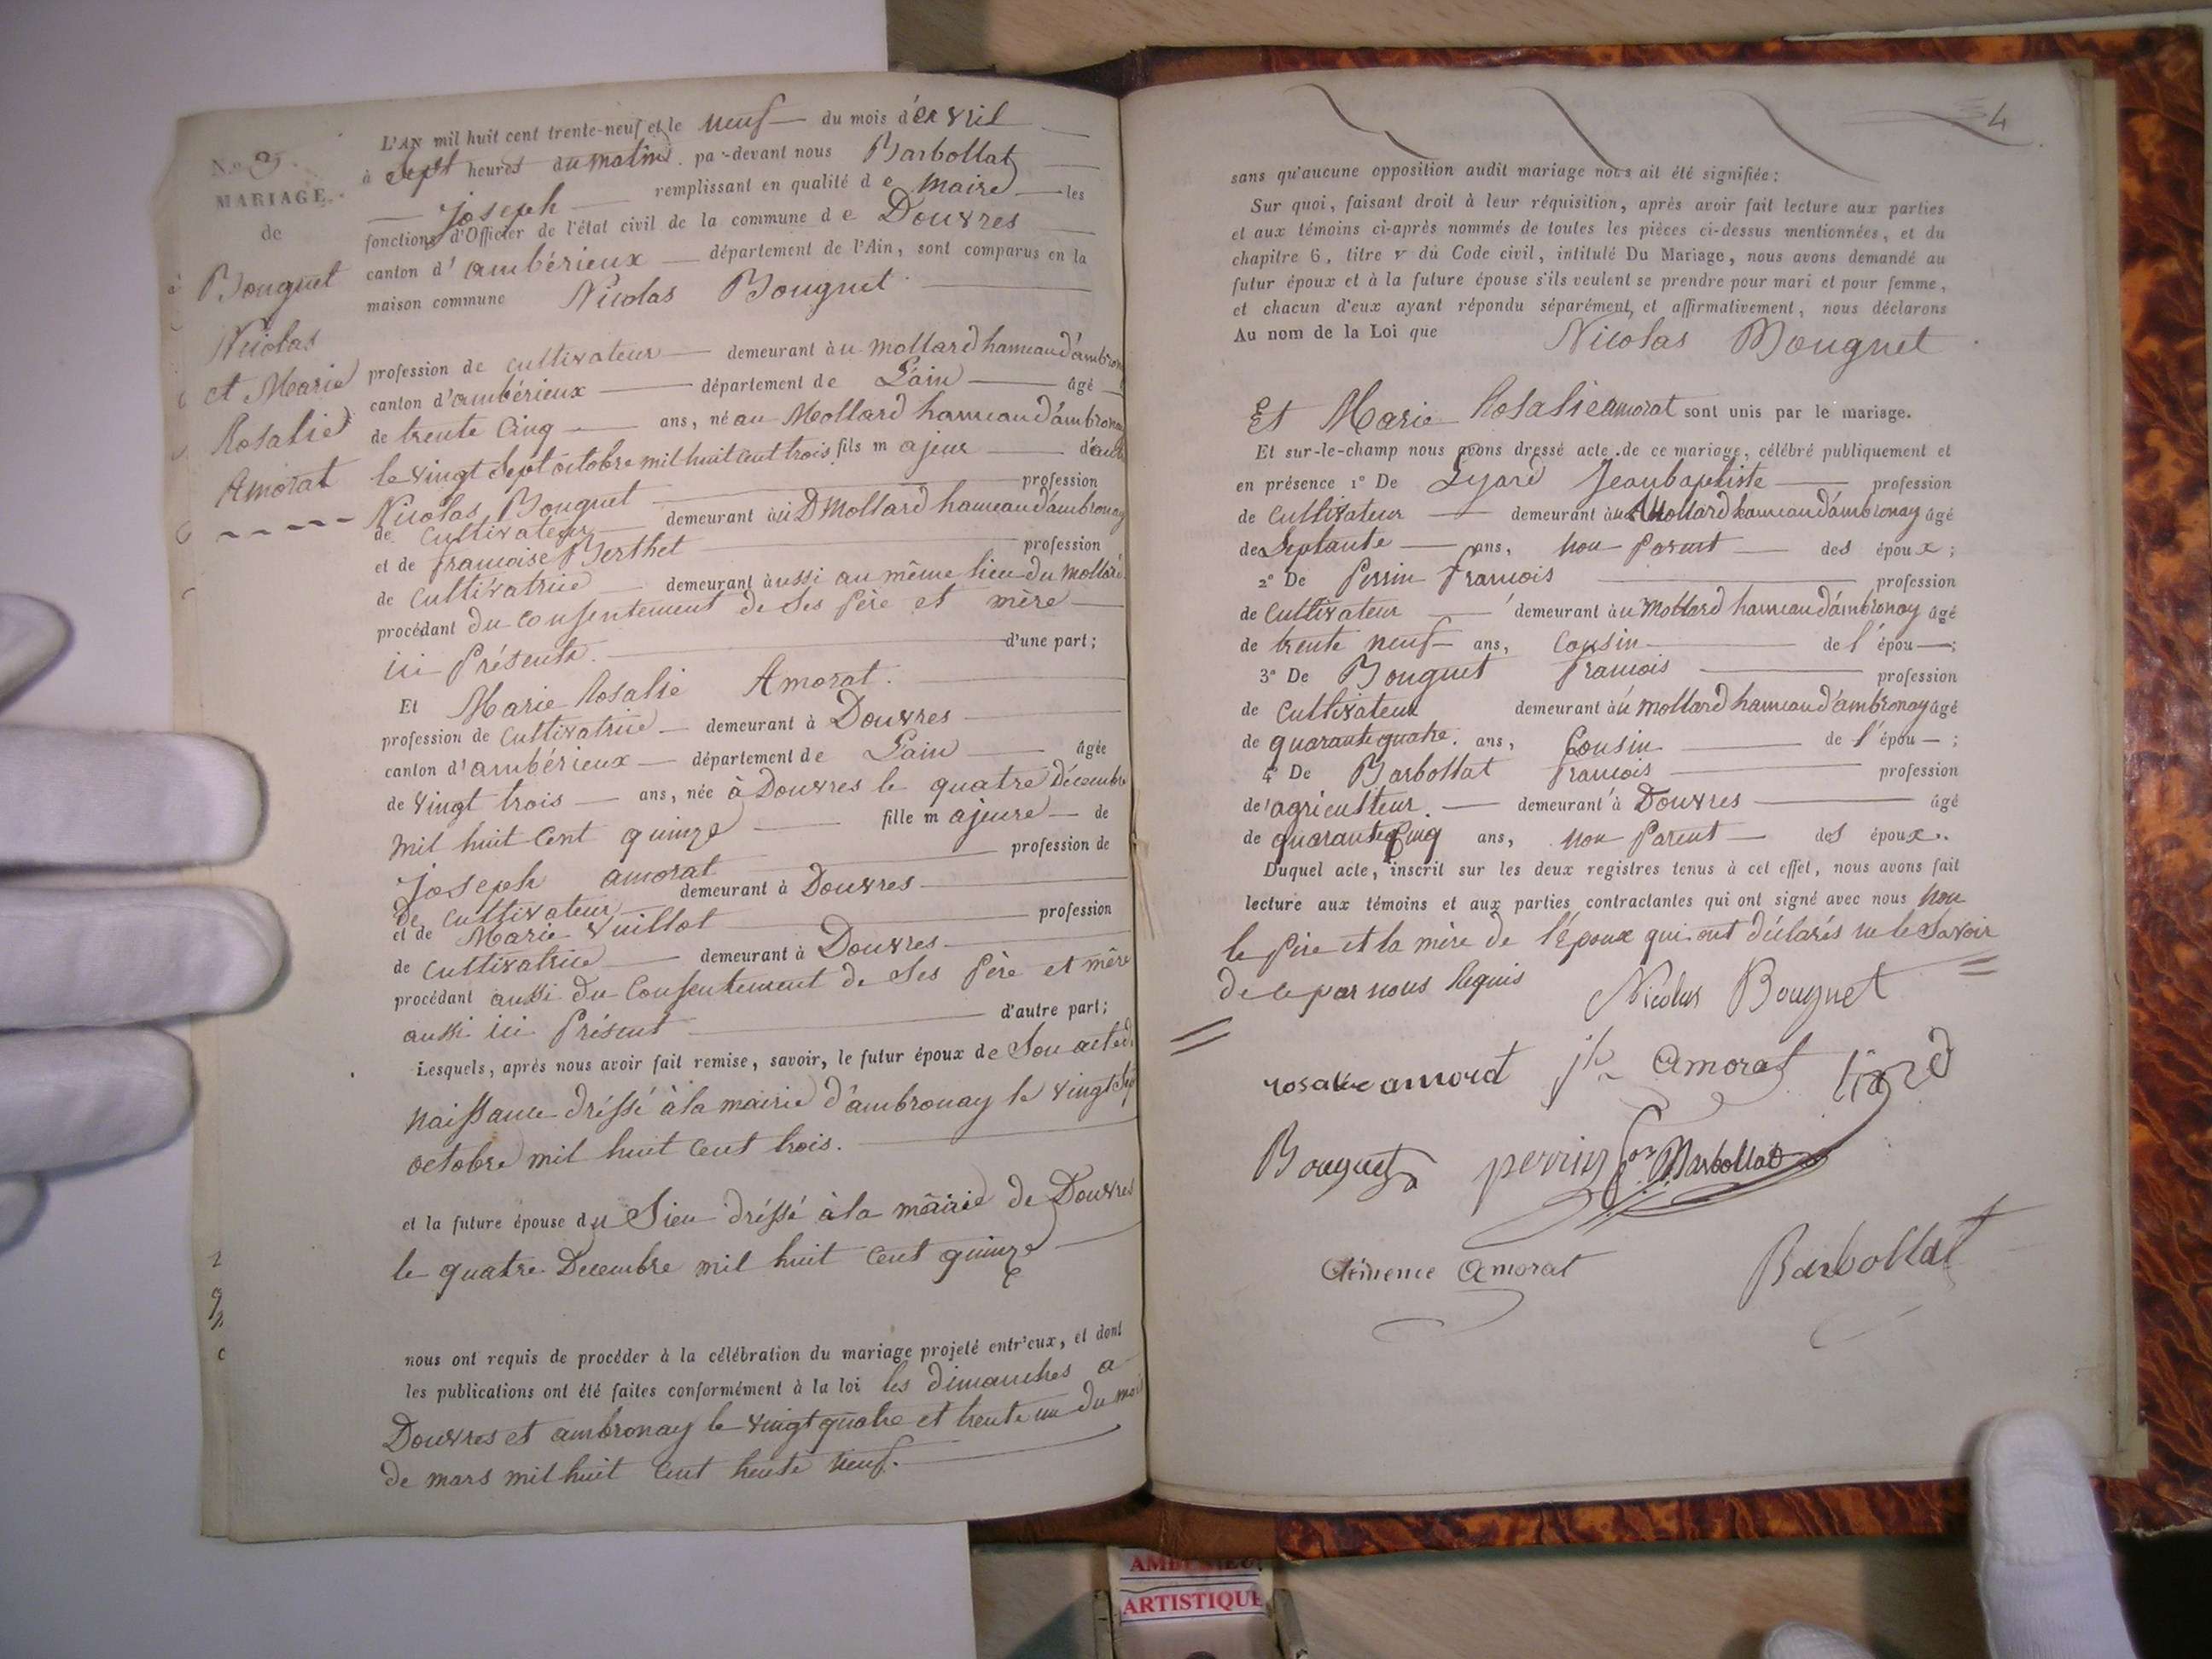 N.o 3.
MARIAGE
de
Bouguet
Nicolas
et Marie
Rosalie
Amorat
L'AN mil huit cent trente-neuf et le neuf du mois d'avril
à sept heures du matin par-devant nous Barbollat
Joseph remplissant en qualité de maire les
fonctions d'Officier de l'état civil de la commune de Douvres
canton d'ambérieux département de l'Ain, sont comparus en la
maison commune Nicolas Bouguet
profession de cultivateur demeurant au mollard hameau d'ambronay
canton d'ambérieux département de L'ain âgé
de trente Cinq ans, né au Mollard hameau d'ambronay
le vingt Sept octobre mil huit cent trois fils majeur
Nicolas Bouguet profession
de cultivateur demeurant au Mollard hameau d'ambronay
et de francoise Berthet profession
de cultivatrice demeurant aussi au même lieu du mollard
procédant du consentement de ses père et mère
ici Présents d'une part;
Et Marie Rosalie Amorat.
profession de cultivatrice demeurant à Douvres
canton d'ambérieux département de L'ain âgée
de vingt trois ans, née à Douvres le quatre Décembre
mil huit Cent quinze fille majeure de
Joseph amorat profession de
de cultivateur demeurant à Douvres
et de Marie Vuillot profession
de cultivatrice demeurant à Douvres
procédant aussi du Consentement de Ses Père et mère
aussi ici Présent d'autre part;
Lesquels, après nous avoir fait remise, savoir, le futur époux de Son acte de
naissance dréssé à la mairie d'ambronay le vingt Sept
octobre mil huit cent trois.
et la future épouse du Sien dréssé à la mairie de Douvres
le quatre Decembre mil huit Cent quinze
nous ont requis de procéder à la célébration du mariage projeté entr'eux, et dont
les publications ont été faites conformément à la loi les dimanches a
Douvres et ambronay le vingt quatre et trente un du mois
de mars mil huit Cent trente neuf.
4
sans qu'aucune opposition audit mariage nous ait été signifiée:
Sur quoi, faisant droit à leur réquisition, après avoir fait lecture aux parties
et aux témoins ci-après nommés de toutes les pièces ci-dessus mentionnées, et du
chapitre 6, titre v du Code civil, intitulé Du Mariage, nous avons demandé au
futur époux et à la future épouse s'ils veulent se prendre pour mari et pour femme,
et chacun d'eux ayant répondu séparément et affirmativement, nous déclarons
Au nom de la Loi que Nicolas Bouguet
Et Marie Rosalie amorat sont unis par le mariage.
Et sur-le-champ nous avons dressé acte de ce mariage, célébré publiquement et
en présence 1° De Lyard Jean baptiste profession
de Cultivateur demeurant au Mollard hameau d'ambronay âgé
de Septante ans, non Parent des époux;
2° De Perrin francois profession
de Cultivateur demeurant au Mollard hameau d'ambronay âgé
de trente neuf ans, Cousin de l'épou;
3° De Bouguet francois profession
de Cultivateur demeurant au mollard hameau d'ambronay âgé
de quarante quatre ans, Cousin de l'épou;
4° De Barbollat francois profession
de agriculteur. demeurant à Douvres âgé
de quarante Cinq ans, non Parent des époux.
Duquel acte, inscrit sur les deux registres tenus à cet effet, nous avons fait
lecture aux témoins et aux parties contractantes qui ont signé avec nous non
le Père et la mère de l'époux qui ont déclarés ne le Savoir
de ce par nous Requis Nicolas Bouguet
rosalie amorat jh Amorat liard
Bouguet perrin fois Barbollat
Clémence Amorat Barbollat
ARTISTIQUE